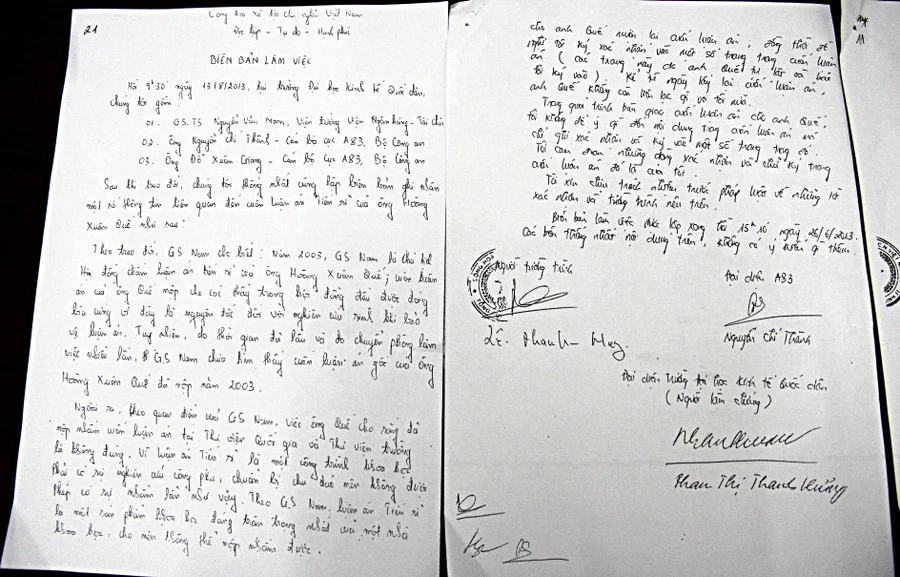 21
Cộng hòa xã hội chủ nghĩa Việt Nam
Độc lập - Tự do - Hạnh phúc
BIÊN BẢN LÀM VIỆC
Hồi 9h30 ngày 13/8/2013, tại trường Đại học Kinh tế Quốc dân,
chúng tôi gồm
01. GS.TS Nguyễn Văn Nam, Viện trưởng Viện Ngân hàng - Tài chính
02. Ông Nguyễn Chí Thành - Cán bộ cục A83, Bộ Công an
03. Ông Đỗ Xuân Giang - Cán bộ cục A83, Bộ Công an
Sau khi trao đổi, chúng tôi thống nhất cùng lập biên bản ghi nhận
một số thông tin liên quan đến cuốn luận án Tiến sĩ của ông Hoàng
Xuân Quế như sau:
Theo trao đổi, GS Nam cho biết: Năm 2003, GS Nam là thư ký
Hội đồng chấm luận án tiến sĩ của ông Hoàng Xuân Quế; cuốn luận
án của ông Quế nộp cho các thầy trong hội đồng đều được đóng
bìa cứng vì đây là nguyên tắc đối với nghiên cứu sinh khi bảo
vệ luận án. Tuy nhiên, do thời gian đã lâu và do chuyển phòng làm
việc nhiều lần, GS Nam chưa tìm thấy cuốn luận án gốc của ông
Hoàng Xuân Quế đã nộp năm 2003.
Ngoài ra, theo quan điểm của GS Nam, việc ông Quế cho rằng đã
nộp nhầm cuốn luận án tại Thư viện Quốc gia và Thư viện trường
là không đúng. Vì luận án Tiến sĩ là một công trình khoa học
phải có sự nghiên cứu công phu, chuẩn bị chu đáo nên không được
phép có sự nhầm lẫn như vậy. Theo GS Nam, luận án Tiến sĩ
là một sản phẩm khoa học đáng trân trọng nhất của một nhà
khoa học, cho nên không thể nộp nhầm được.
cho anh Quế mượn lại cuốn luận án, đồng thời đề
nghị tôi ký xác nhận vào một số trang trong cuốn luận
án (các trang này do anh Quế tự lật và bảo
tôi ký vào). Kể từ ngày lấy lại cuốn luận án,
anh Quế không còn liên lạc gì với tôi nữa.
Trong quá trình bàn giao cuốn luận án cho anh Quế,
tôi không để ý gì đến nội dung trong cuốn luận án mà
chỉ ghi xác nhận và ký vào một số trang trong đó.
Tôi cam đoan những dòng xác nhận và chữ ký trong
cuốn luận án đó là của tôi.
Tôi xin chịu trách nhiệm trước pháp luật về những lời
xác nhận và tường trình nêu trên.
Biên bản làm việc được lập xong hồi 15h10 ngày 26/6/2013.
Các bên thống nhất nội dung trên, không có ý kiến gì thêm.
Người tường trình
Đại diện A83
Nguyễn Chí Thành
Đại diện trường Đại học Kinh tế Quốc dân
(Người làm chứng)
Phan Thị Thanh Hường